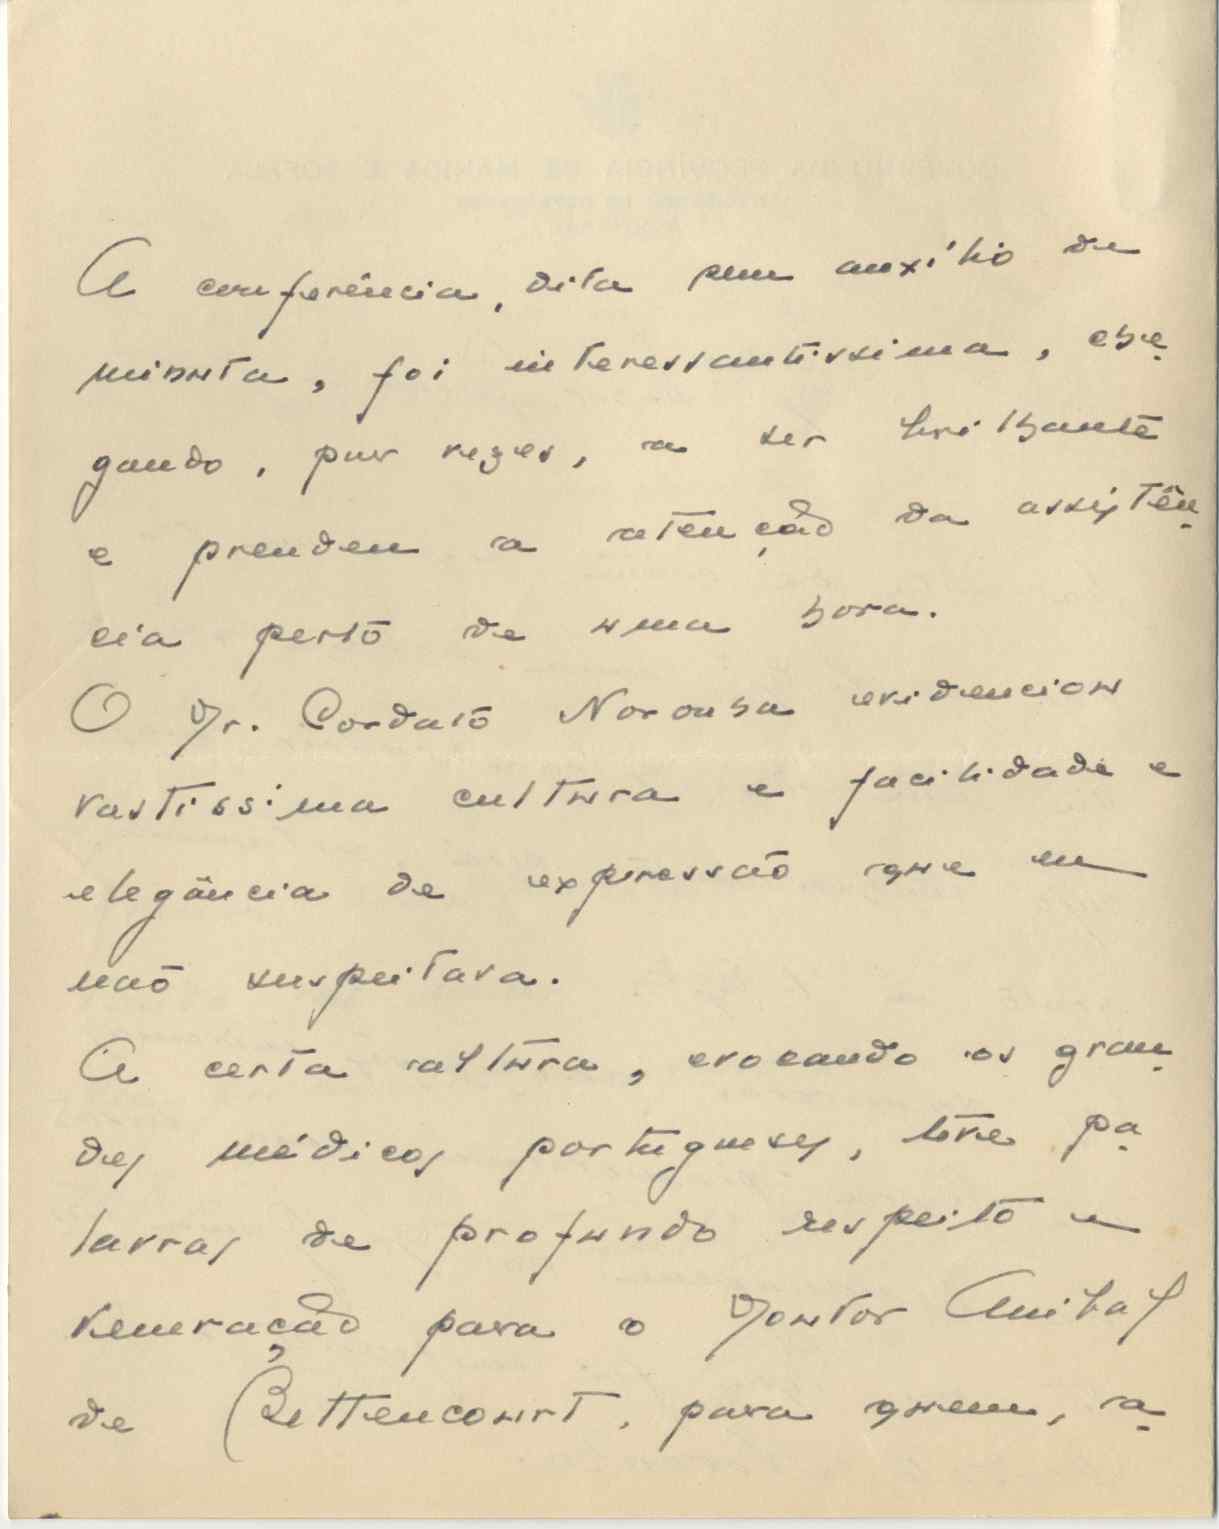 A conferência, dita sem auxílio de
minuta, foi interessantíssima, che-
gando, por vezes, a ser brilhante
e prendeu a atenção da assistên-
cia perto de uma hora.
O Dr. Cordato Noronha evidenciou
vastíssima cultura e facilidade e
elegância de expressão que eu
não suspeitava.
A certa altura, evocando os gran-
des médicos portugueses, teve pa-
lavras de profundo respeito e
veneração para o Doutor Anibal
de Bettencourt, para quem, a-